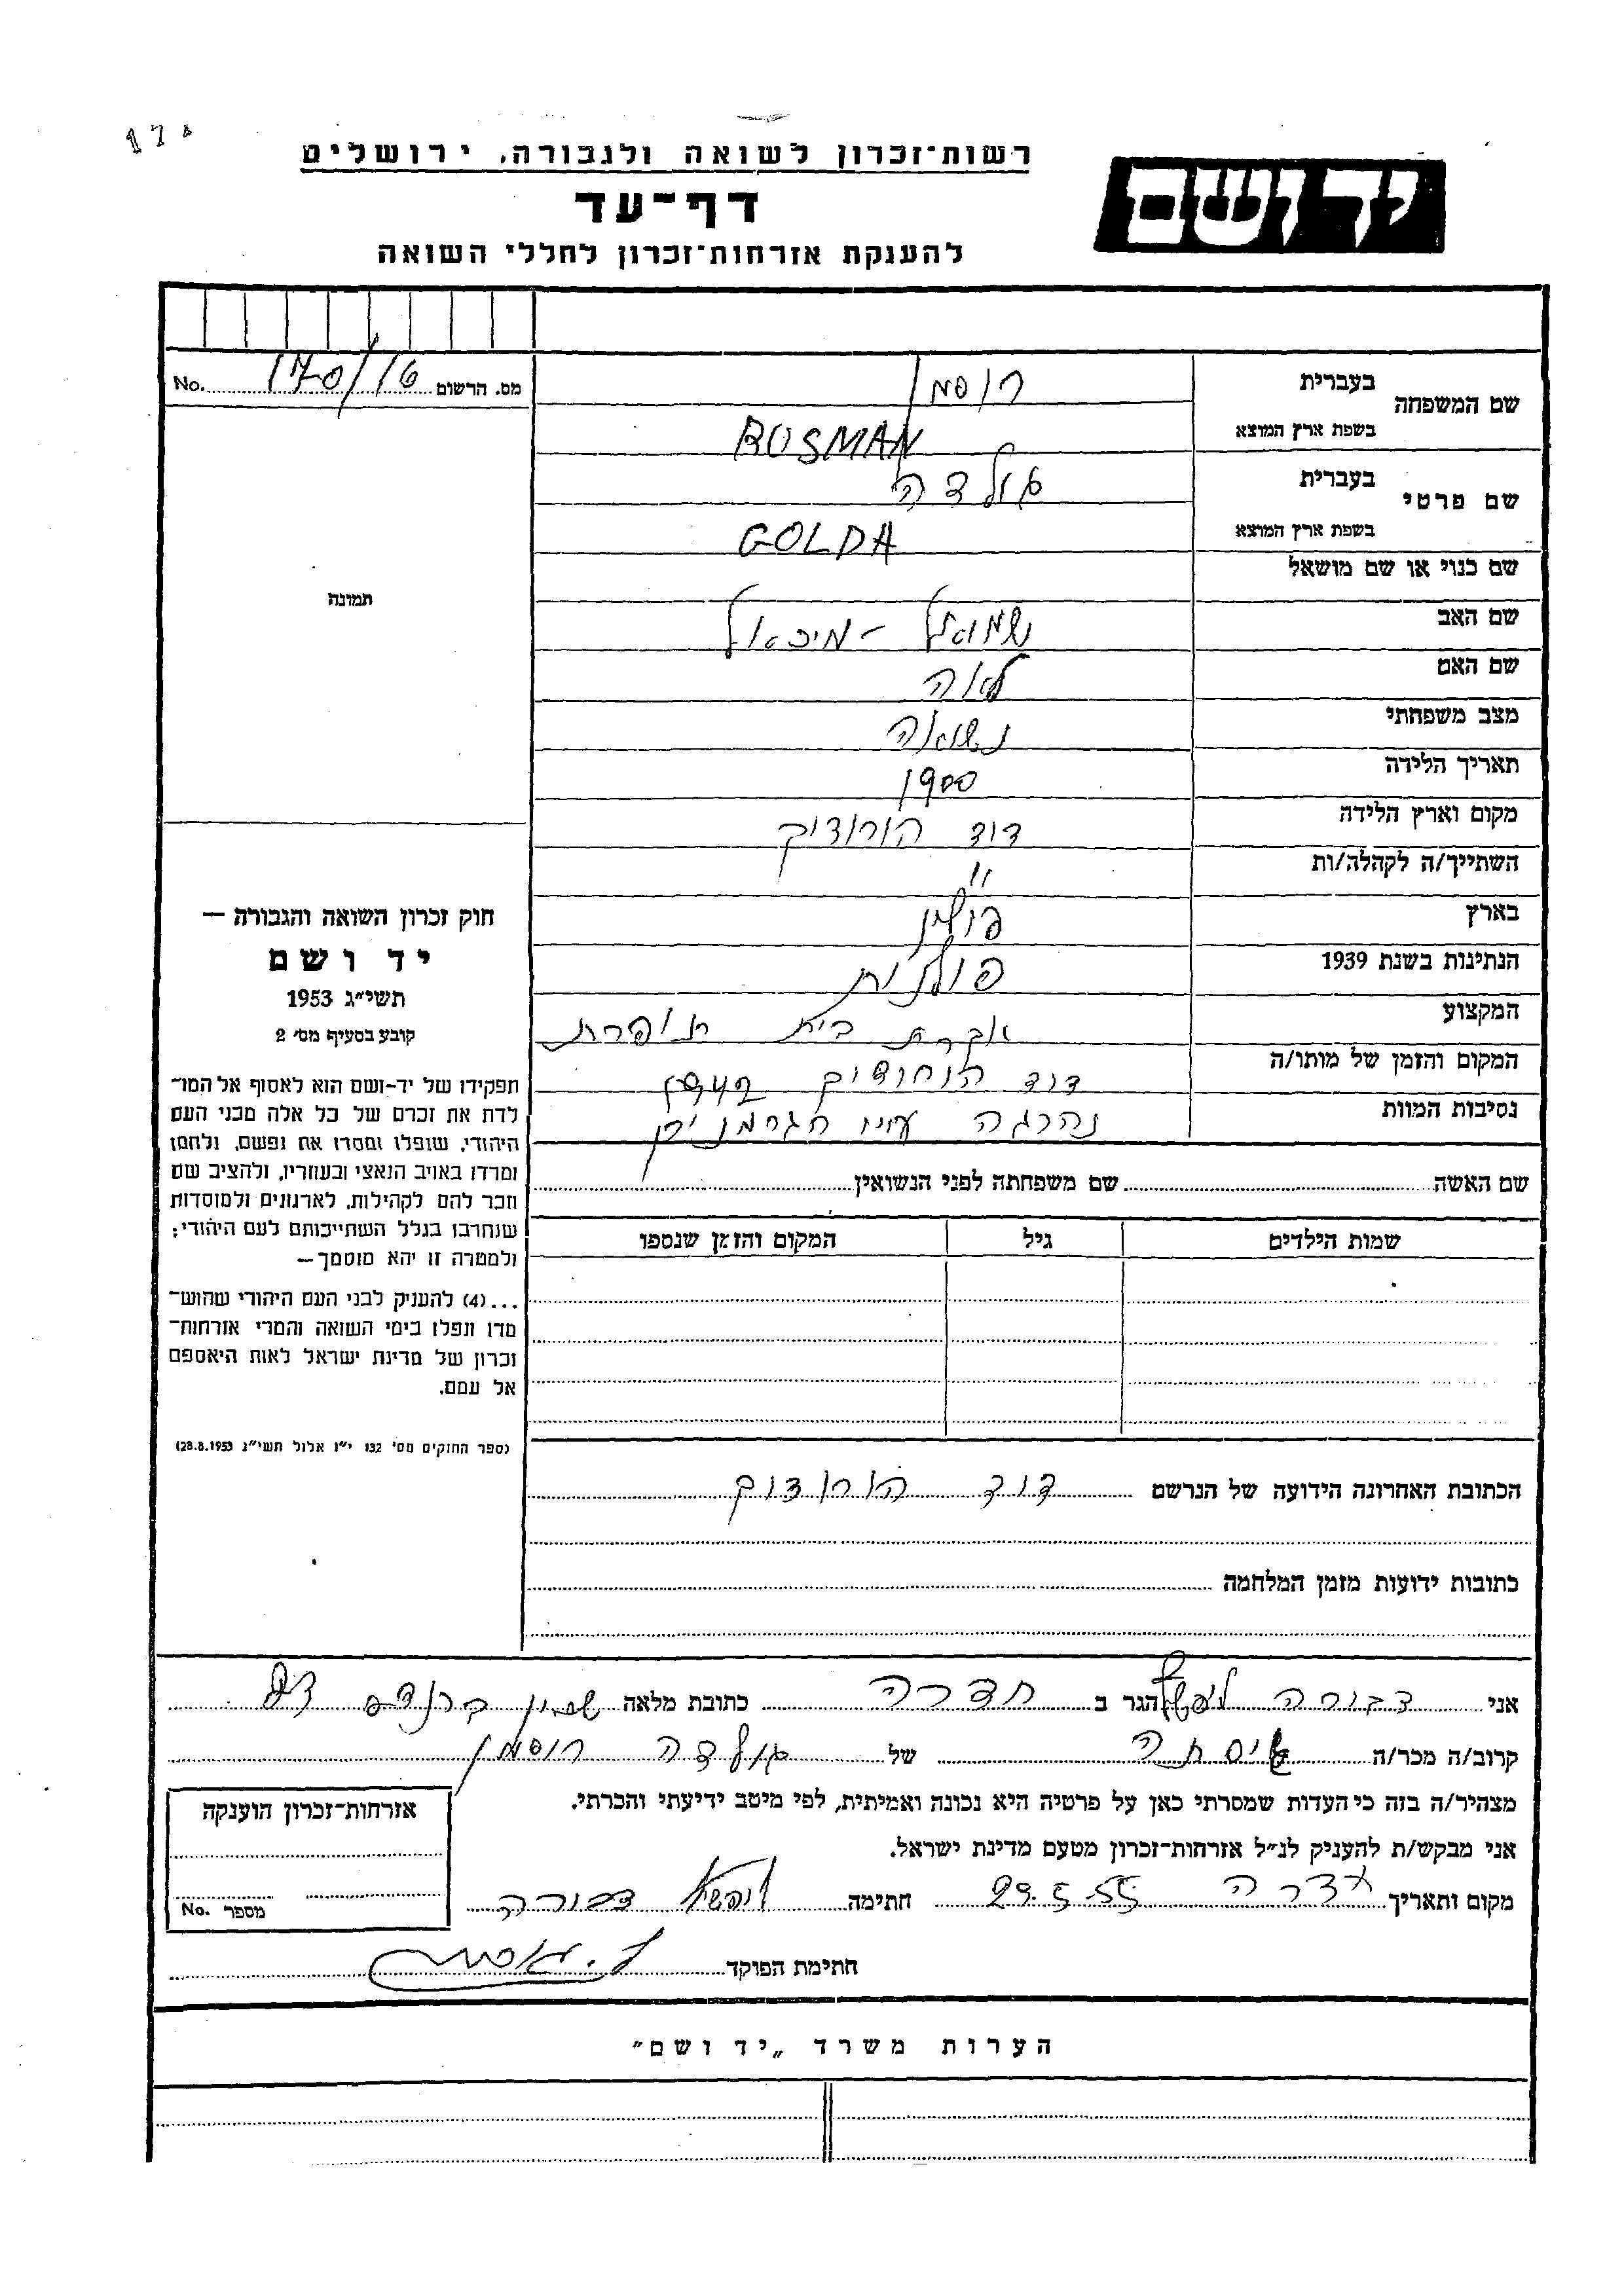 רשות־זכרון לשואה ולגבורה, ירושלים
יד ושם
דף־עד
להענקת אזרחות־זכרון לחללי השואה
מס. הרשום 170/16 No.
שם המשפחה
בעברית רוסמן
בשפת ארץ המוצא ROSMAN
שם פרטי
בעברית גולדה
בשפת ארץ המוצא GOLDA
שם כנוי או שם מושאל
שם האב שמואל - מיכאל
שם האם לאה
מצב משפחתי נשואה
תאריך הלידה 1900
מקום וארץ הלידה דוד הורודוק
השתייך/ה לקהלה/ות "
בארץ פולין
הנתינות בשנת 1939 פולנית
המקצוע עקרת בית תופרת
המקום והזמן של מותו/ה דוד 1942
נסיבות המוות נהרגה ע"י הגרמנים
תמונה
חוק זכרון השואה והגבורה —
יד ושם
תשי״ג 1953
קובע בסעיף מס׳ 2
תפקידו של יד-ושם הוא לאסוף אל המו־
לדת את זכרם של כל אלה מבני העם
היהודי, שנפלו ומסרו את נפשם, נלחמו
ומרדו באויב הנאצי ובעוזריו, ולהציב שם
וזכר להם לקהילות, לארגונים ולמוסדות
שנחרבו בגלל השתייכותם לעם היהודי;
ולמטרה זו יהא מוסמך—
...(4) להעניק לבני העם היהודי שהוש־
מדו ונפלו בימי השואה והמרי אזרחות־
זכרון של מדינת ישראל לאות היאספם
אל עמם.
(ספר החוקים מס׳ 132 י״ז אלול תשי״ג 28.8.1953)
שם האשה שם משפחתה לפני הנשואין
שמות הילדים גיל המקום והזמן שנספו
הכתובת האחרונה הידועה של הנרשם דוד הורודוק
כתובות ידועות מזמן המלחמה
אני דבורה הגר ב חדרה כתובת מלאה שכון ברנדס
קרוב/ה מכר/ה גיסתה של גולדה רוסמן
מצהיר/ה בזה כי העדות שמסרתי כאן על פרטיה היא נכונה ואמיתית, לפי מיטב ידיעתי והכרתי.
אני מבקש/ת להעניק לנ״ל אזרחות־זכרון מטעם מדינת ישראל.
מקום ותאריך חדרה 29.5.55 חתימה דבורה
חתימת הפוקד
אזרחות־זכרון הוענקה
מספר No.
הערות משרד „יד ושם״